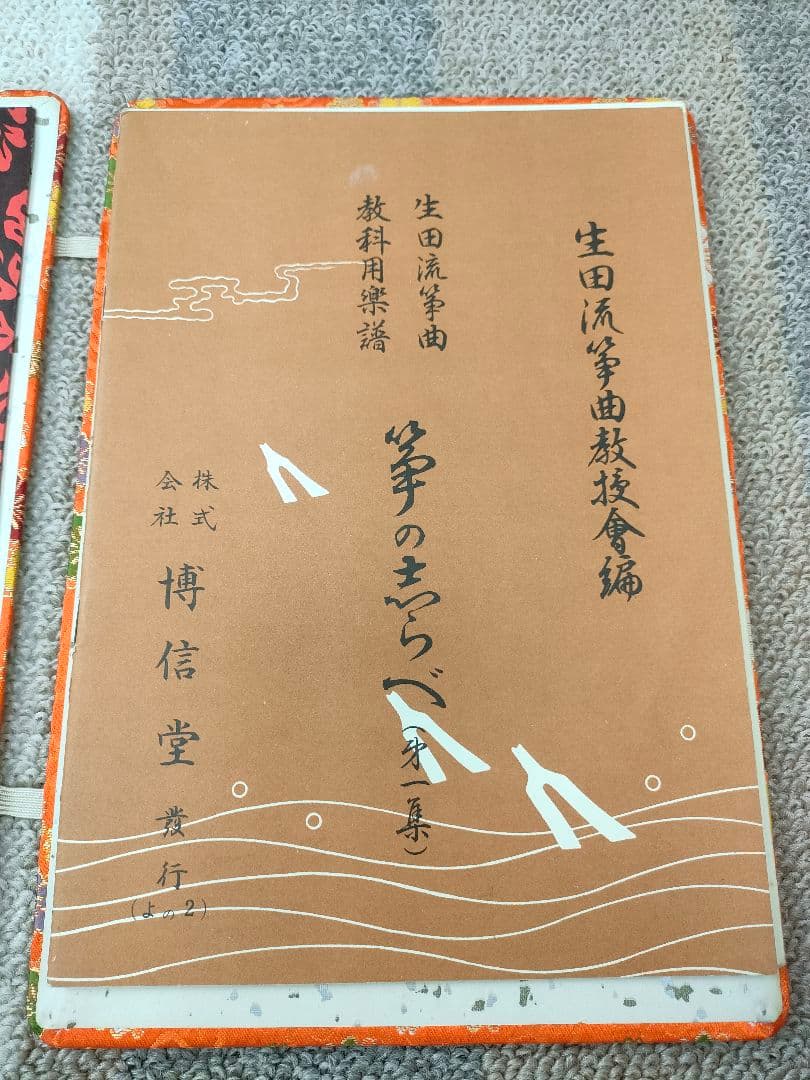 生田流箏曲教授會編
生田流箏曲
教科用樂譜
箏の志らべ(第一集)
株式
会社
博信堂發行
(よの2)